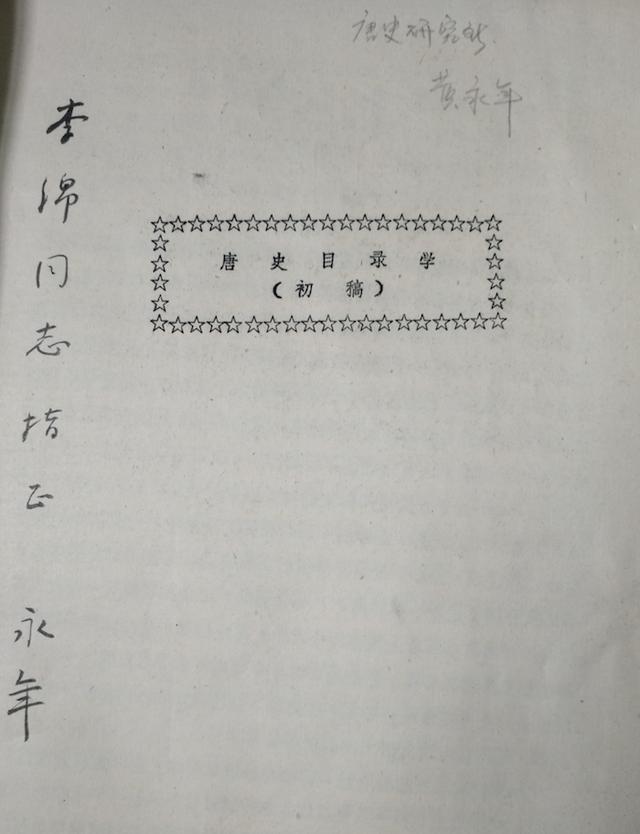 唐史研究所
黄永年
唐史目录学
（初稿）
李绵同志指正
永年